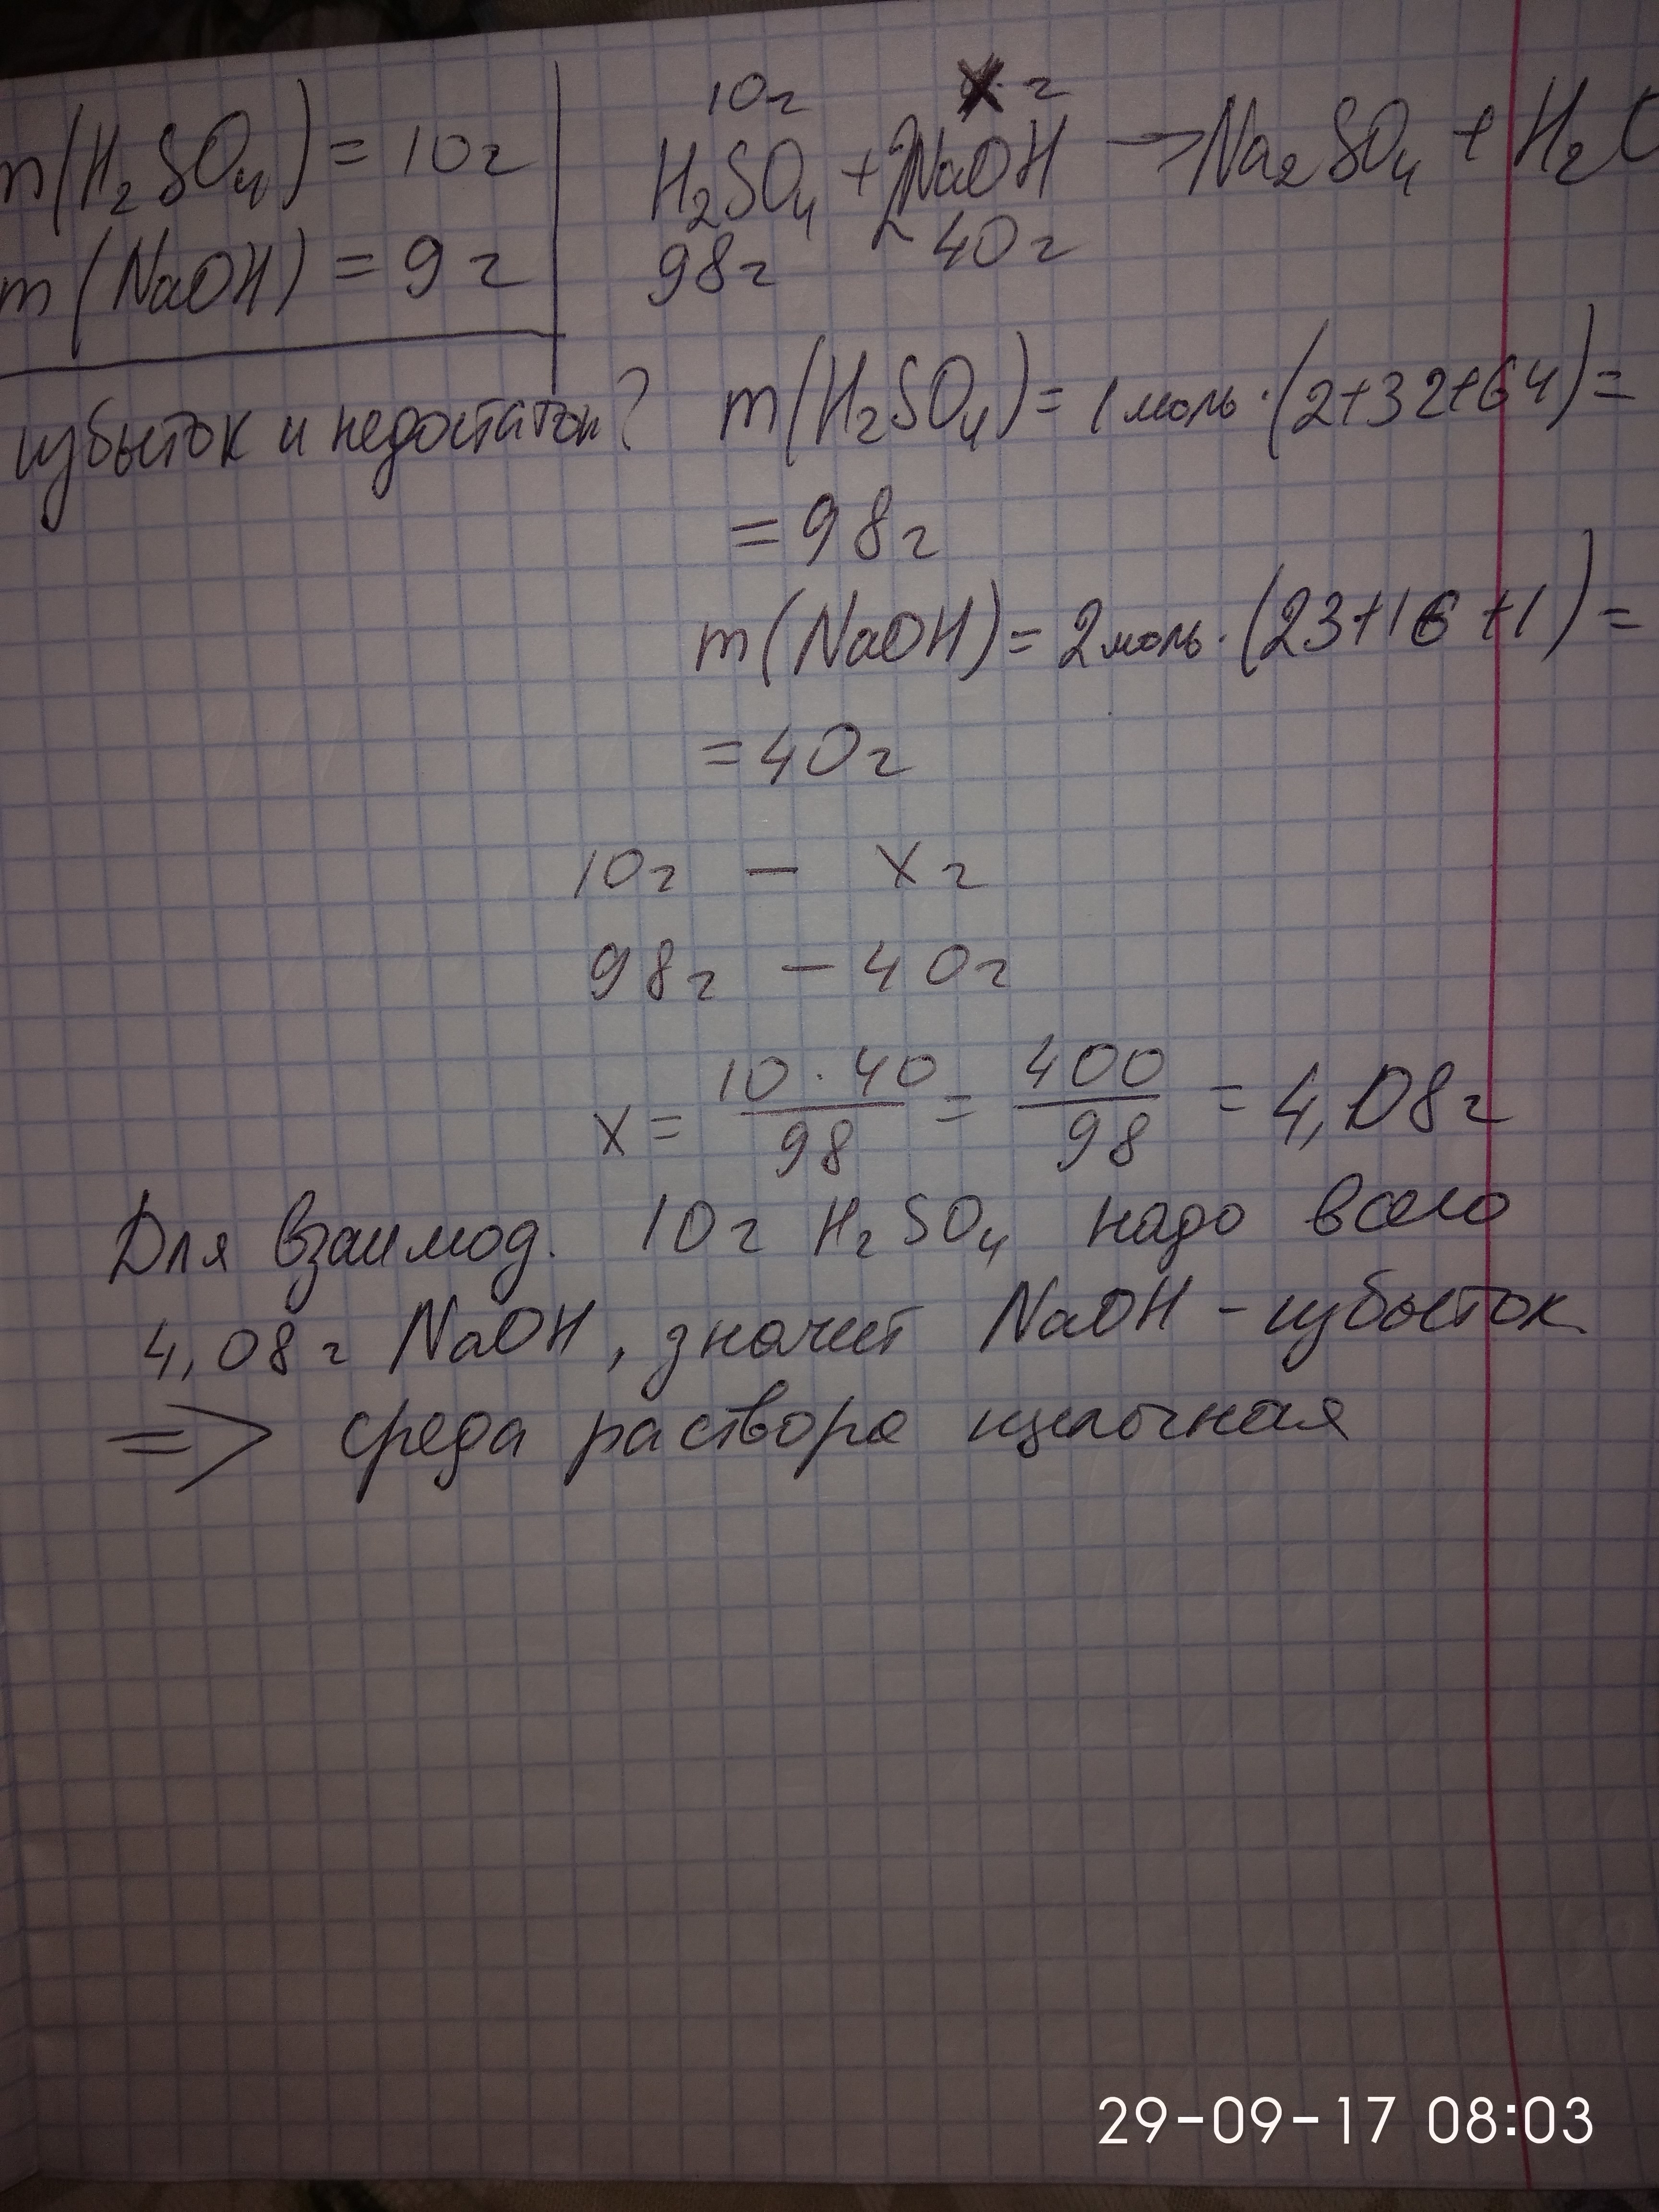 m(H₂SO₄) = 10г
m(NaOH) = 9г
избыток и недостаток?
10г x г
H₂SO₄ + 2NaOH → Na₂SO₄ + H₂O
98г 40г
m(H₂SO₄) = 1 моль · (2+32+64) =
= 98г
m(NaOH) = 2 моль · (23+16+1) =
= 40г
10г – x г
98г – 40г
x = 10 · 40 / 98 = 400 / 98 = 4,08г
Для взаимод. 10г H₂SO₄ надо всего
4,08г NaOH, значит NaOH – избыток
=> среда раствора щелочная
29-09-17 08:03